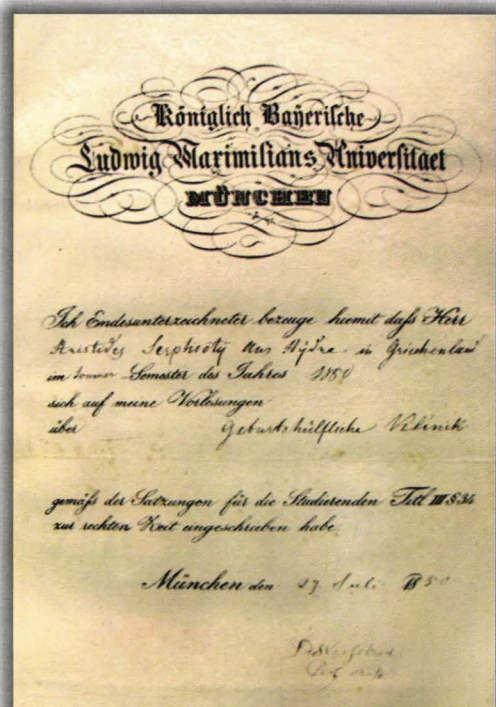 Königlich Bayerische
Ludwig Maximilians Universitaet
MÜNCHEN
Ich Endesunterzeichneter bezeuge hiemit daß Herr
Aristides aus Hydra in Griechenland
im Sommer Semester des Jahres 1850
sich auf meine Vorlesungen
über Geburtshülfliche Klinik
gemäß der Satzungen für die Studierenden Titl III § 34
zur rechten Zeit eingeschrieben habe.
München den 27 Juli 1850